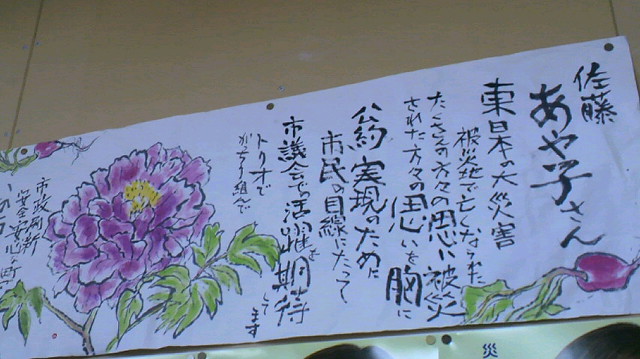 佐藤
あや子さん
東日本の大災害
被災地で亡くなられた
たくさんの方々の思い被災
された方々の思いを胸に
公約実現のために
市民の目線にたって
市議会での活躍を期待
します
トリオで
がっちり組んで
市政刷新
安全安心の町
災